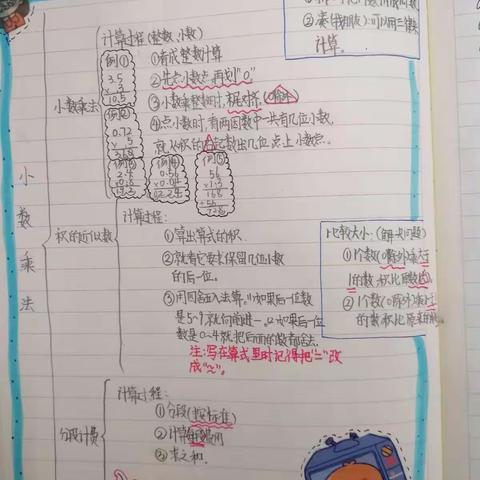 计算过程(整数,小数)
例①
3.5
× 3
10.5
①看成整数计算
②先点小数点,再划"0"
③小数乘整数时,末尾对齐,
例②
0.72
× 5
④点小数时,看两因数中一共有几位小数,
就从积的右边起数出几位点上小数点。
小数乘法
例③
2.4
例④
0.56
×0.04
例⑤
56
×1.3
168
56
计算。
小数乘法
积的近似数
计算过程:
①算出算式的积.
②就看它要求保留几位小数
的后一位。
③用四舍五入法算。(1)如果后一位数
是5~9就向前进一。(2)如果后一位
数是0~4就把后面的数都舍去.
注:写在算式里时记得把"="改
成"≈"。
比较大小:(解决问题)
①1个数(0除外)乘大于
1的数,积比原数大
②1个数(0除外)乘小于
的数积比原来的
分段计费
计算过程:
①分段(按标准)
②计算每段费用
③求之和.